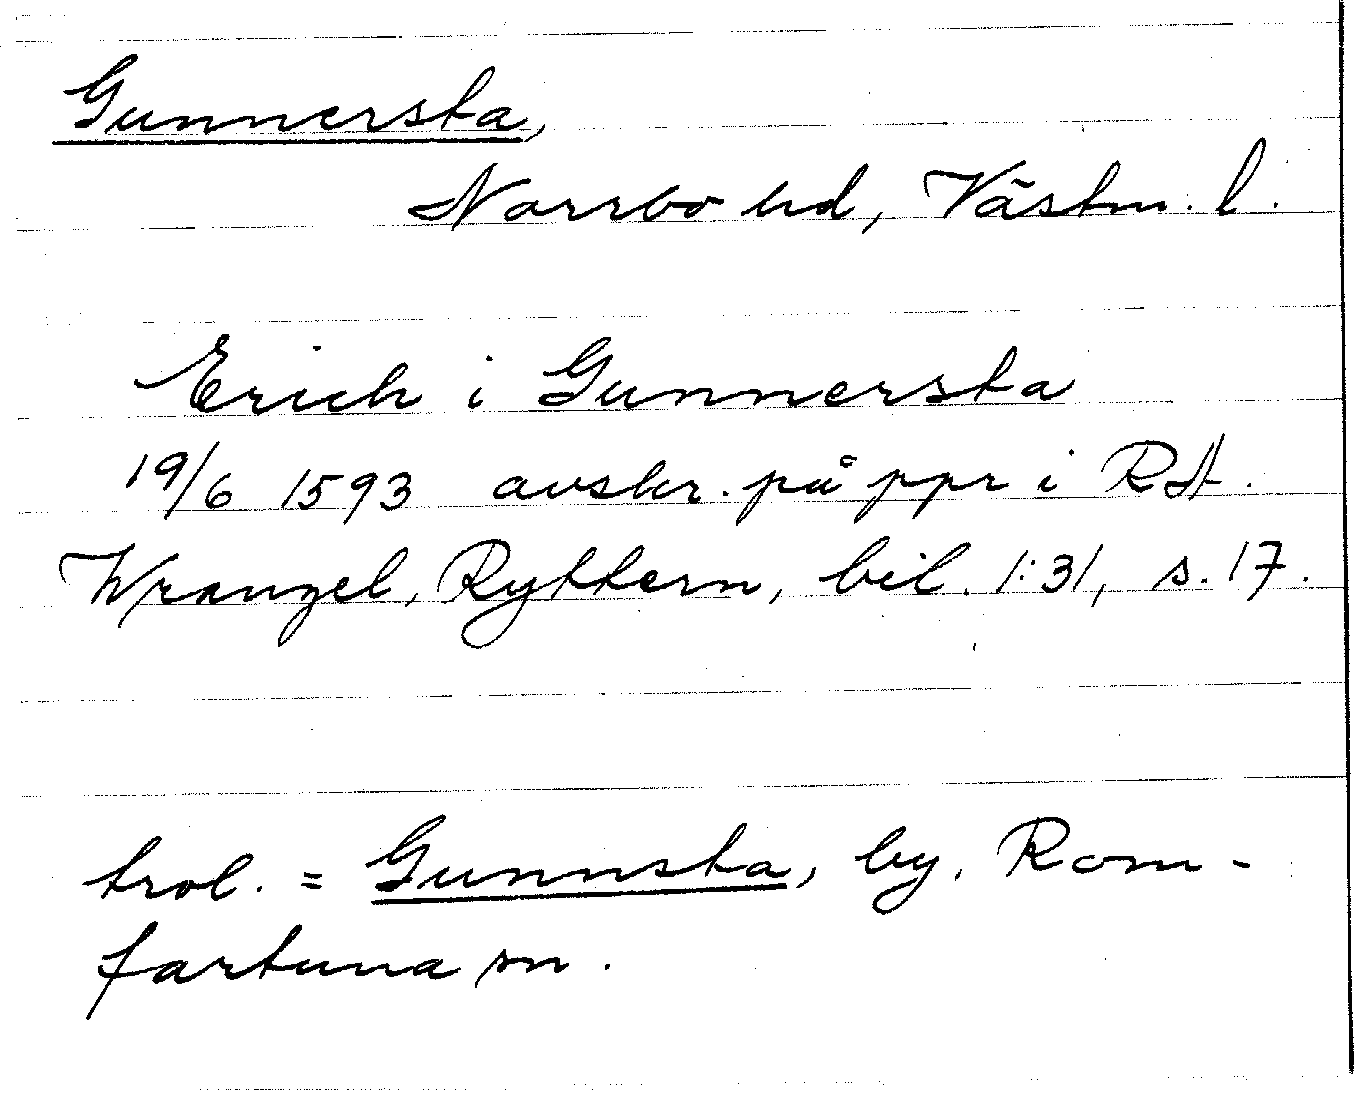 Gunnersta,
Norrbo hd, Västm. l.
Erich i Gunnersta
19/6 1593 avskr. på ppr i RA.
Wrangel, Ryttern, bil. 1:31, s. 17.
trol. = Gunnsta, by, Rom-
fartuna sn.